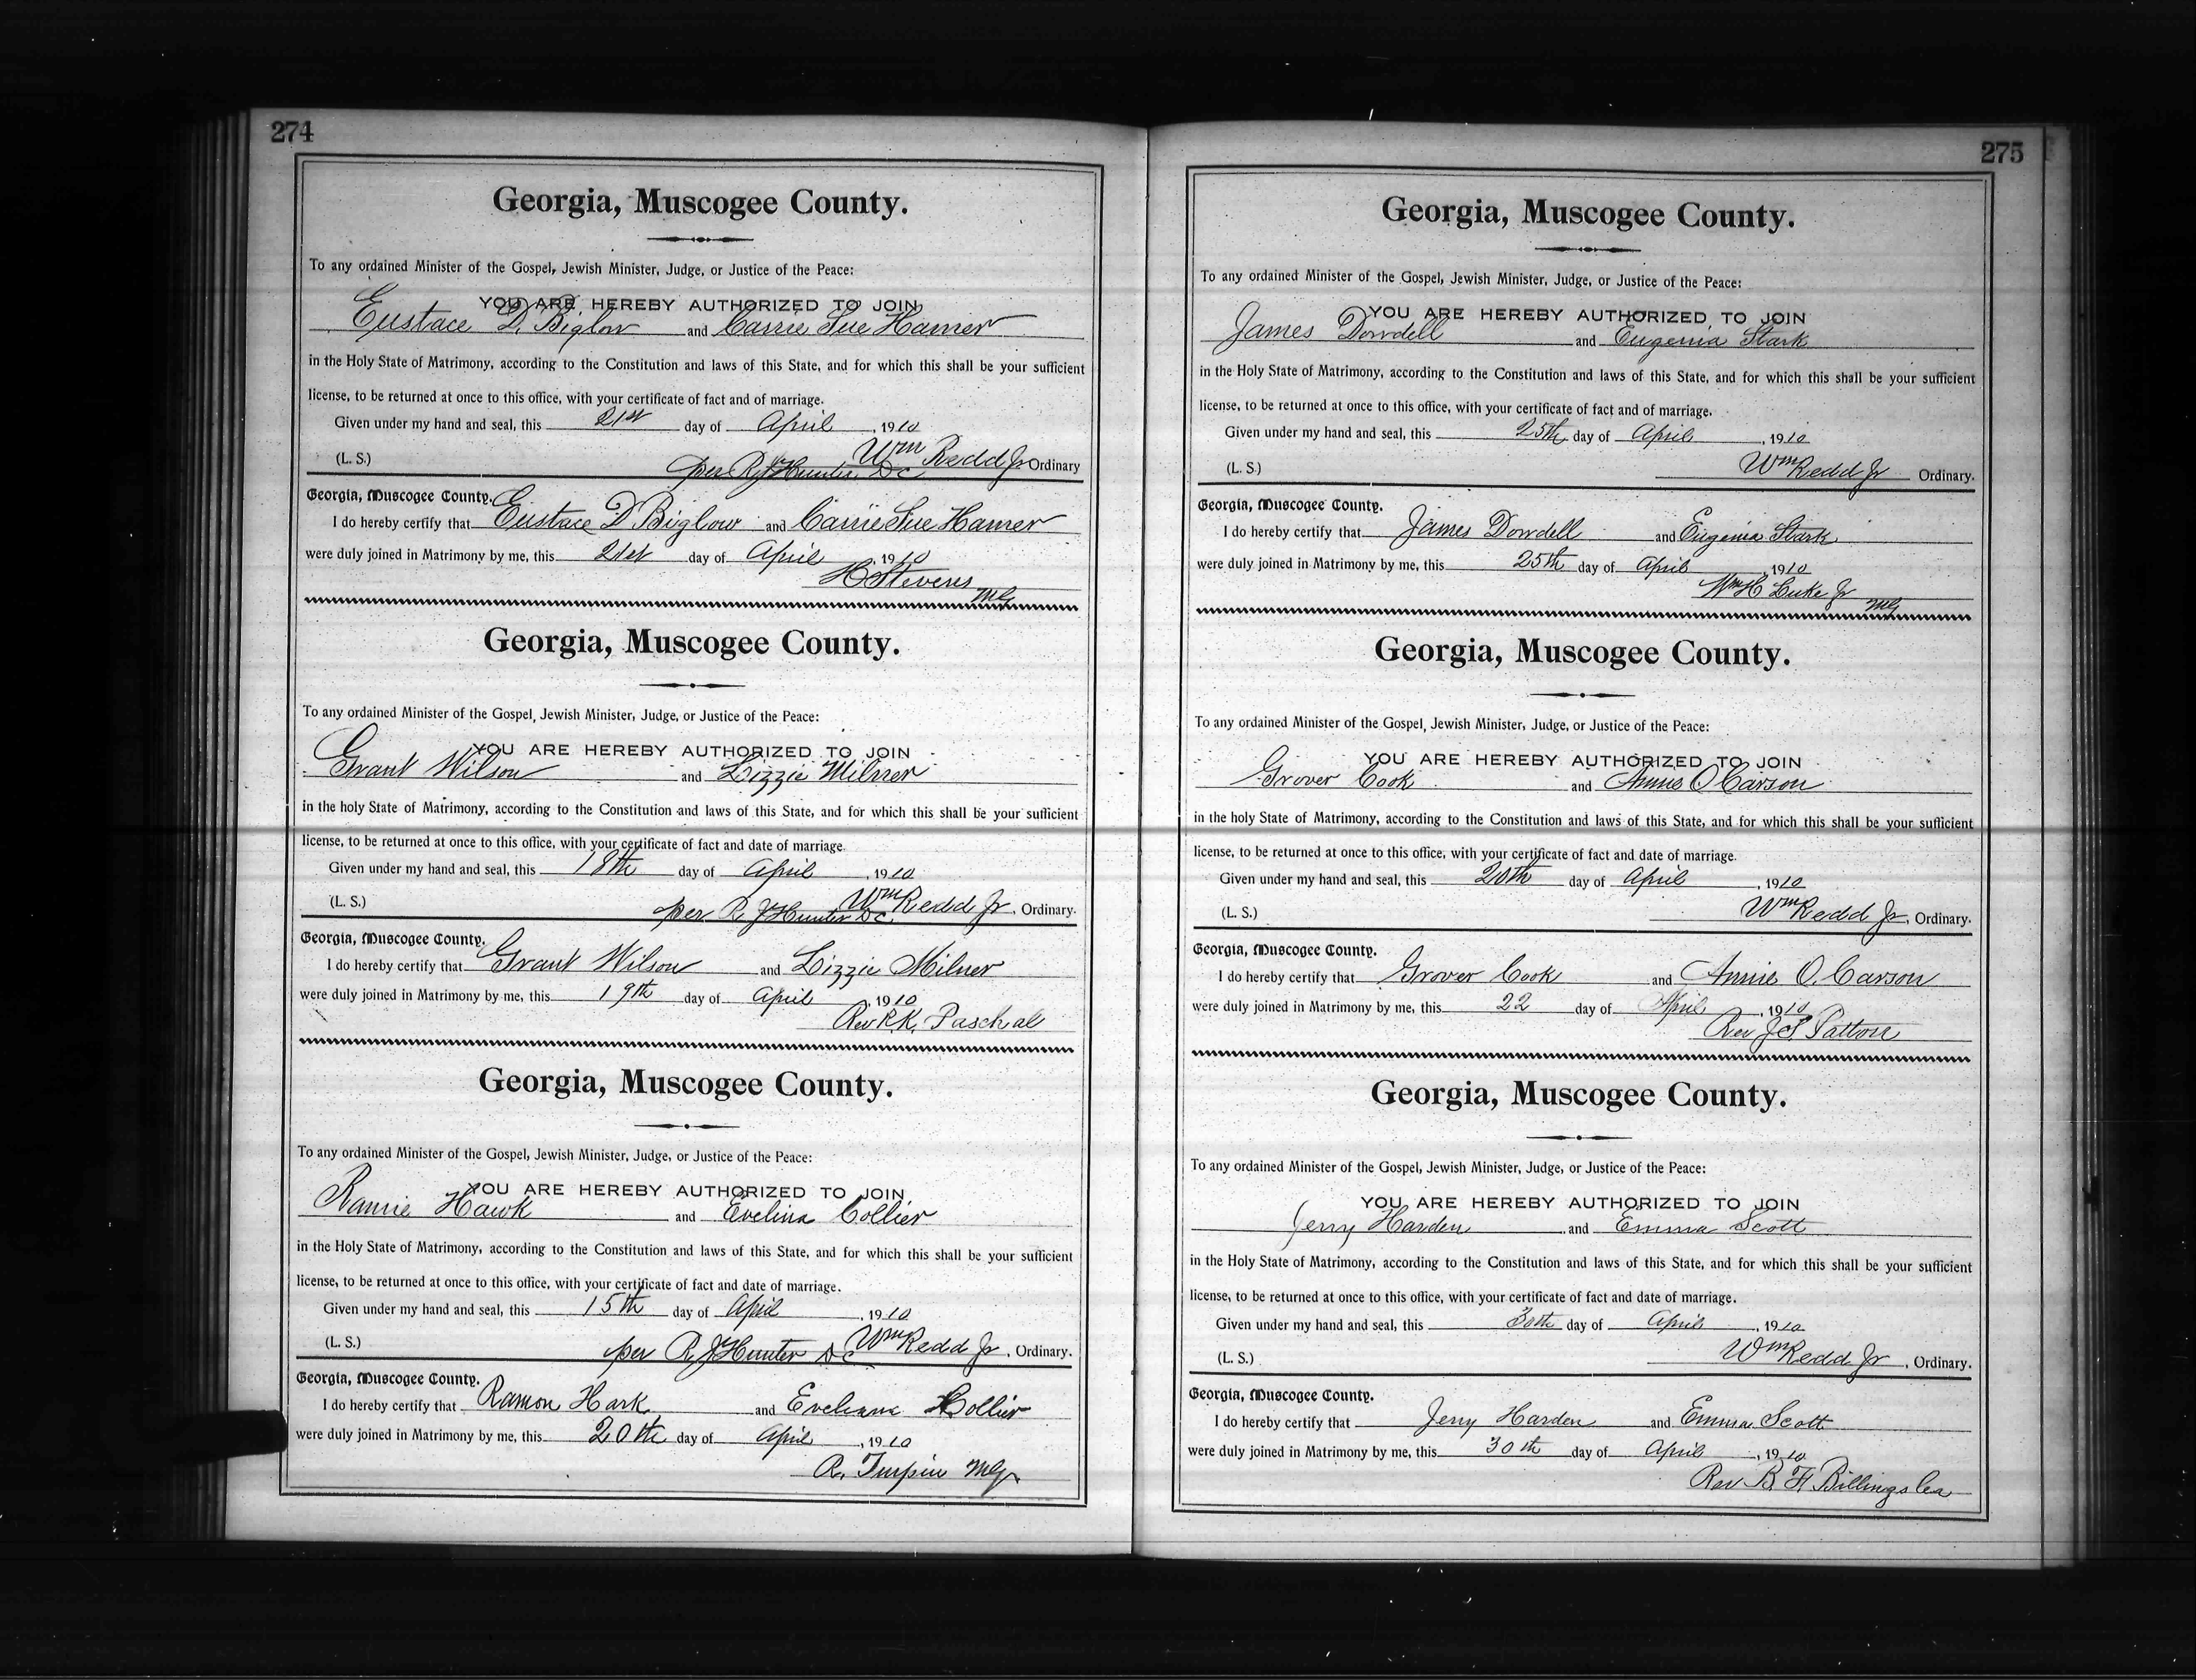 274
Georgia, Muscogee County.
To any ordained Minister of the Gospel, Jewish Minister, Judge, or Justice of the Peace:
YOU ARE HEREBY AUTHORIZED TO JOIN
Eustace D. Biglow and Carrie Sue Hamer
in the Holy State of Matrimony, according to the Constitution and laws of this State, and for which this shall be your sufficient
license, to be returned at once to this office, with your certificate of fact and of marriage.
Given under my hand and seal, this 21st day of April, 1910
(L. S.) Wm Redd Jr Ordinary
per R J Hunter DC
Georgia, Muscogee County.
I do hereby certify that Eustace D Biglow and Carrie Sue Hamer
were duly joined in Matrimony by me, this 21st day of April, 1910
H Stevens
MG
Georgia, Muscogee County.
To any ordained Minister of the Gospel, Jewish Minister, Judge, or Justice of the Peace:
YOU ARE HEREBY AUTHORIZED TO JOIN
Grant Wilson and Lizzie Milner
in the holy State of Matrimony, according to the Constitution and laws of this State, and for which this shall be your sufficient
license, to be returned at once to this office, with your certificate of fact and date of marriage.
Given under my hand and seal, this 18th day of April, 1910
(L. S.) Wm Redd Jr, Ordinary.
per R J Hunter DC
Georgia, Muscogee County.
I do hereby certify that Grant Wilson and Lizzie Milner
were duly joined in Matrimony by me, this 19th day of April, 1910
Rev R.K. Paschal
Georgia, Muscogee County.
To any ordained Minister of the Gospel, Jewish Minister, Judge, or Justice of the Peace:
YOU ARE HEREBY AUTHORIZED TO JOIN
Rannie Hawk and Evelina Collier
in the Holy State of Matrimony, according to the Constitution and laws of this State, and for which this shall be your sufficient
license, to be returned at once to this office, with your certificate of fact and date of marriage.
Given under my hand and seal, this 15th day of April, 1910
(L. S.) per R J Hunter DC Wm Redd Jr, Ordinary.
Georgia, Muscogee County.
I do hereby certify that Ramon Hark and Evelina Collier
were duly joined in Matrimony by me, this 20th day of April, 1910
R. Turpin MG
275
Georgia, Muscogee County.
To any ordained Minister of the Gospel, Jewish Minister, Judge, or Justice of the Peace:
YOU ARE HEREBY AUTHORIZED TO JOIN
James Dowdell and Eugenia Stark
in the Holy State of Matrimony, according to the Constitution and laws of this State, and for which this shall be your sufficient
license, to be returned at once to this office, with your certificate of fact and of marriage.
Given under my hand and seal, this 25th day of April, 1910
(L. S.) Wm Redd Jr Ordinary.
Georgia, Muscogee County.
I do hereby certify that James Dowdell and Eugenia Stark
were duly joined in Matrimony by me, this 25th day of April, 1910
Wm H Luke Jr
MG
Georgia, Muscogee County.
To any ordained Minister of the Gospel, Jewish Minister, Judge, or Justice of the Peace:
YOU ARE HEREBY AUTHORIZED TO JOIN
Grover Cook and Annie O Carson
in the holy State of Matrimony, according to the Constitution and laws of this State, and for which this shall be your sufficient
license, to be returned at once to this office, with your certificate of fact and date of marriage.
Given under my hand and seal, this 20th day of April, 1910
(L. S.) Wm Redd Jr, Ordinary.
Georgia, Muscogee County.
I do hereby certify that Grover Cook and Annie O. Carson
were duly joined in Matrimony by me, this 22 day of April, 1910
Rev J S Patton
Georgia, Muscogee County.
To any ordained Minister of the Gospel, Jewish Minister, Judge, or Justice of the Peace:
YOU ARE HEREBY AUTHORIZED TO JOIN
Jerry Harden and Emma Scott
in the Holy State of Matrimony, according to the Constitution and laws of this State, and for which this shall be your sufficient
license, to be returned at once to this office, with your certificate of fact and date of marriage.
Given under my hand and seal, this 30th day of April, 1910
(L. S.) Wm Redd Jr, Ordinary.
Georgia, Muscogee County.
I do hereby certify that Jerry Harden and Emma Scott
were duly joined in Matrimony by me, this 30th day of April, 1910
Rev B F Billingslea